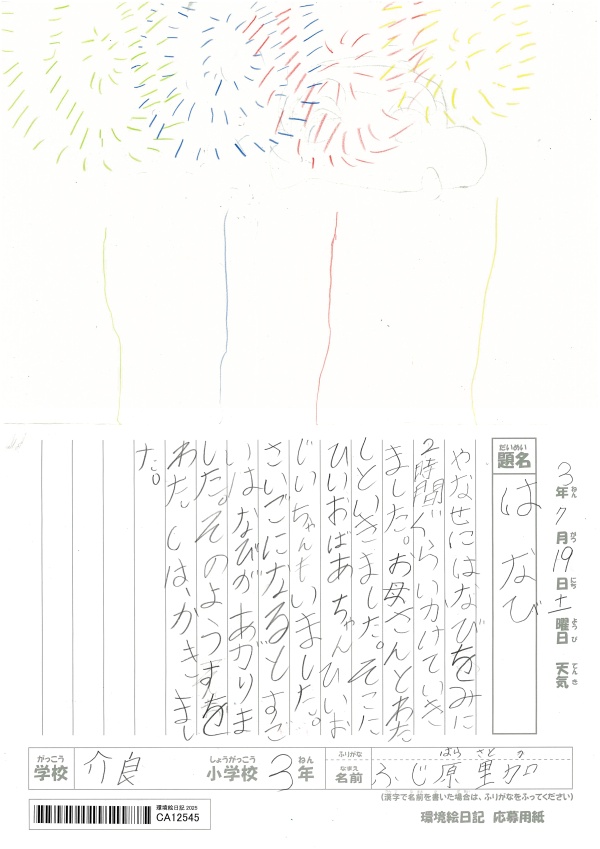 3年ねん7月がつ19日にち土曜日ようび 天気てんき
題名だいめい はなび
やなせにはなびをみに
2時間ぐらいかけていき
ました。お母さんとわた
しといきました。そこに
ひいおばあちゃんひいお
じいちゃんもいました。
さいごになるとすご
いはなびがあがりま
した。そのようすを
わたしは、かきまし
た。
がっこう 学校 介良 しょうがっこう 小学校 3年ねん
ふりがな はら さと か
なまえ 名前 ふじ原 里加
(漢字で名前を書いた場合は、ふりがなをふってください)
環境絵日記 2025
CA12545
環境絵日記 応募用紙